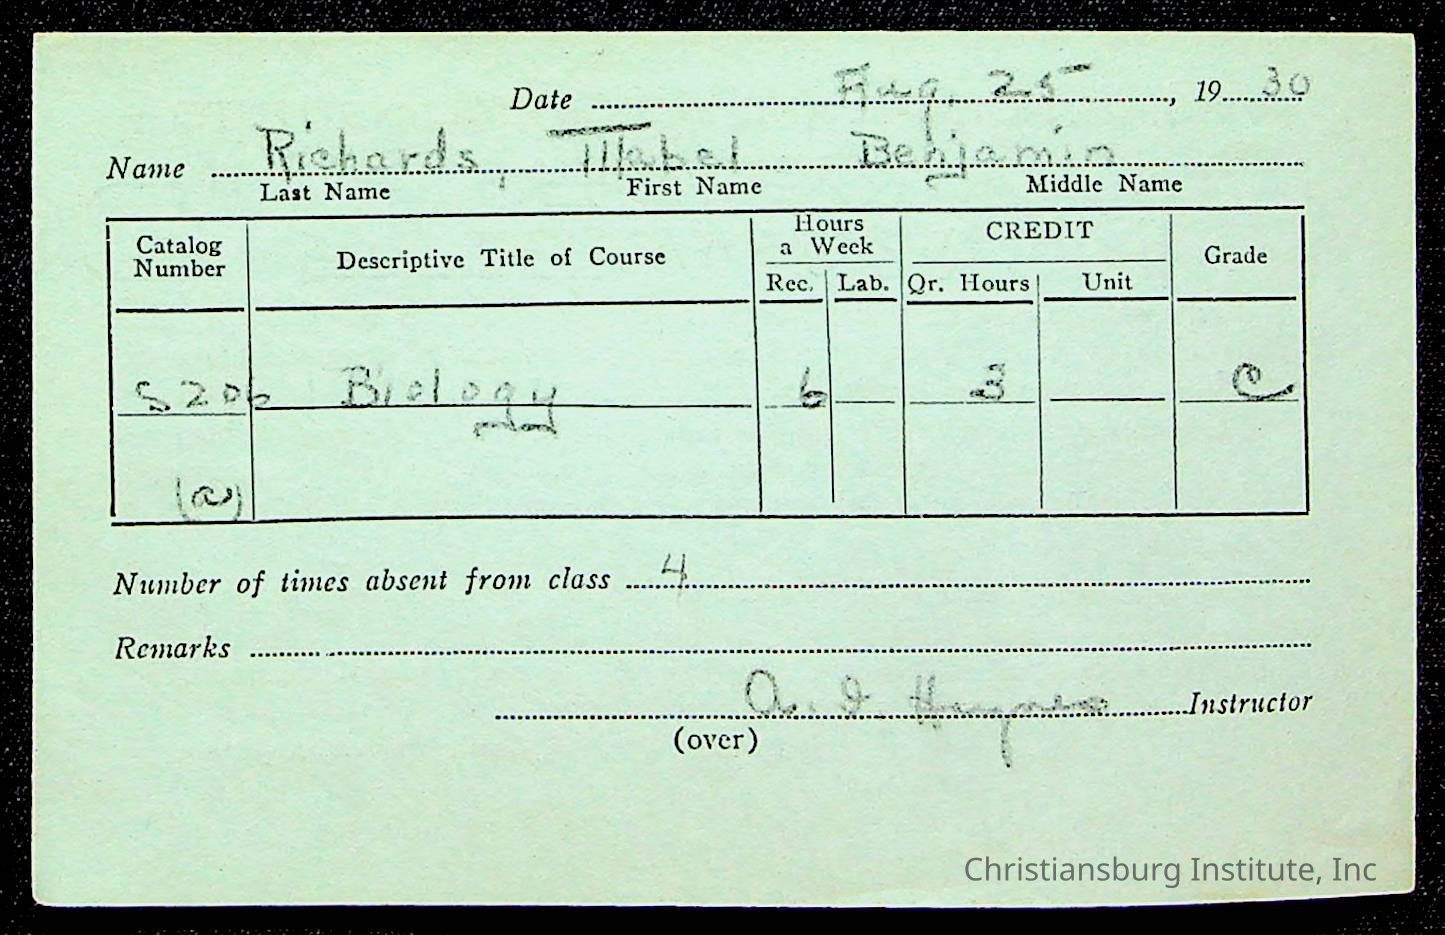 Date Aug. 25, 1930
Name Richards, Mabel Benjamin
Last Name First Name Middle Name
Catalog Number Descriptive Title of Course Hours a Week Rec. Lab. CREDIT Qr. Hours Unit Grade
S206 Biology 6 3 C
(a)
Number of times absent from class 4
Remarks
A. I. Instructor
(over)
Christiansburg Institute, Inc